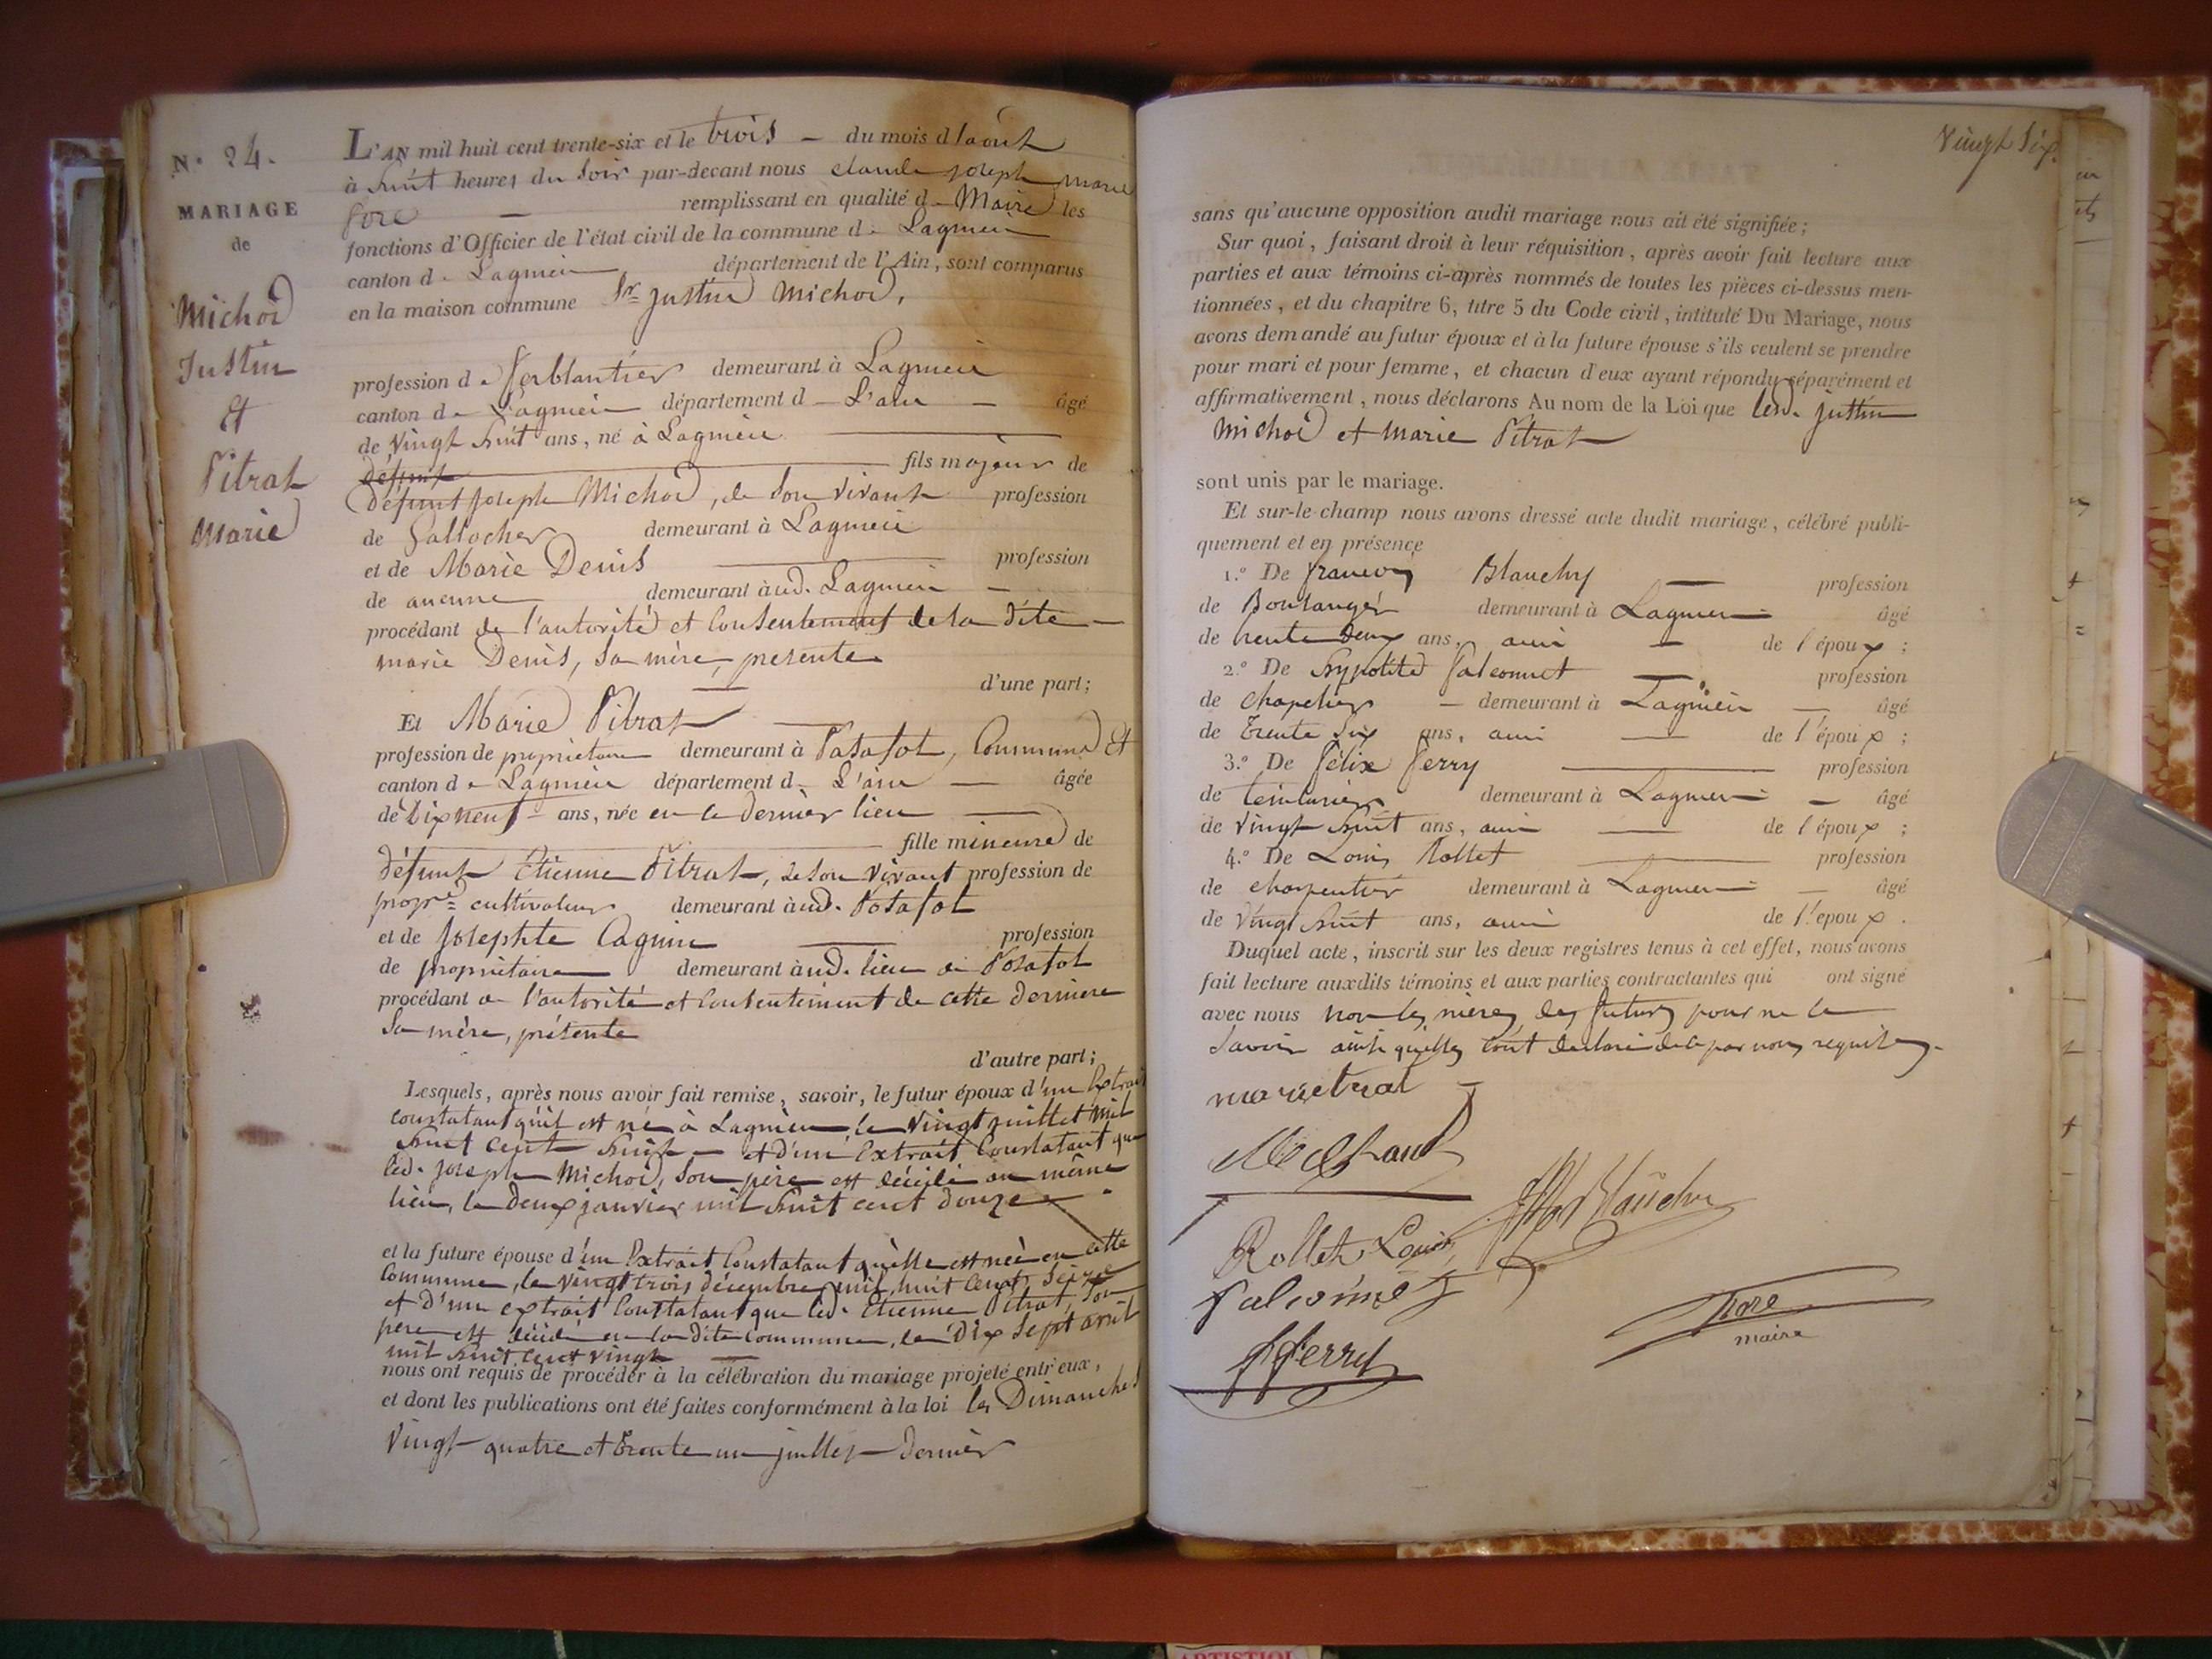 N.° 24.
MARIAGE
de
Michod
Justin
Et
Pitrat
Marie
L'AN mil huit cent trente-six et le trois — du mois d'aout
à huit heures du soir par-devant nous claude joseph marie
remplissant en qualité de Maire les
fonctions d'Officier de l'état civil de la commune de Lagnieu
canton de Lagnieu département de l'Ain, sont comparus
en la maison commune Sr justin Michod,
profession de ferblantier demeurant à Lagnieu
canton de Lagnieu département de L'ain — âgé
de vingt huit ans, né à Lagnieu
défunt fils majeur de
défunt joseph Michod, de son vivant profession
de demeurant à Lagnieu
et de Marie Denis profession
de aucune demeurant aud. Lagnieu —
procédant de l'autorité et consentement de la dite —
marie Denis, sa mère, présente
d'une part;
Et Marie Pitrat
profession de propriétaire demeurant à Posafol, Commune et
canton de Lagnieu département de L'ain — âgée
de dix neuf ans, née en ce dernier lieu
fille mineure de
défunt Etienne Pitrat, de son vivant profession de
propre cultivateur demeurant aud. Posafol
et de Josephte Cagnin profession
de propriétaire demeurant aud. lieu de Posafol
procédant de l'autorité et consentement de cette dernière
sa mère, présente
d'autre part;
Lesquels, après nous avoir fait remise, savoir, le futur époux d'un Extrait
constatant qu'il est né à Lagnieu, le vingt juillet mil
huit cent huit — et d'un Extrait constatant que
led. joseph Michod, son père est décédé au même
lieu, le deux janvier mil huit cent douze
et la future épouse d'un Extrait constatant qu'elle est née en cette
commune, le vingt trois décembre mil huit cent seize
et d'un extrait constatant que led. Etienne Pitrat, son
père est décédé en la dite commune, le dix sept avril
mil huit cent vingt
nous ont requis de procéder à la célébration du mariage projeté entr'eux,
et dont les publications ont été faites conformément à la loi les Dimanches
vingt quatre et trente un juillet dernier
vingt six.
sans qu'aucune opposition audit mariage nous ait été signifiée;
Sur quoi, faisant droit à leur réquisition, après avoir fait lecture aux
parties et aux témoins ci-après nommés de toutes les pièces ci-dessus men-
tionnées, et du chapitre 6, titre 5 du Code civil, intitulé Du Mariage, nous
avons demandé au futur époux et à la future épouse s'ils veulent se prendre
pour mari et pour femme, et chacun d'eux ayant répondu séparément et
affirmativement, nous déclarons Au nom de la Loi que lesd. justin
Michod et Marie Pitrat
sont unis par le mariage.
Et sur-le-champ nous avons dressé acte dudit mariage, célébré publi-
quement et en présence
1.° De françois Blanchy — profession
de Boulanger demeurant à Lagnieu âgé
de trente deux ans, ami — de l'époux;
2.° De hypolite falconnet — profession
de chapelier — demeurant à Lagnieu — âgé
de trente six ans, ami — de l'époux;
3.° De félix ferry profession
de teinturier demeurant à Lagnieu — âgé
de vingt huit ans, ami — de l'époux;
4.° De Louis Rollet profession
de charpentier demeurant à Lagnieu — âgé
de vingt huit ans, ami de l'époux.
Duquel acte, inscrit sur les deux registres tenus à cet effet, nous avons
fait lecture auxdits témoins et aux parties contractantes qui ont signé
avec nous non les mères des futurs pour ne le
savoir ainsi qu'elles l'ont déclaré de ce par nous requises.
Rollet Louis
falconnet
fferry
maire